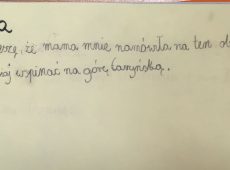 a
że mama mnie namówiła na ten
wspinać na górę Łarzyńską.